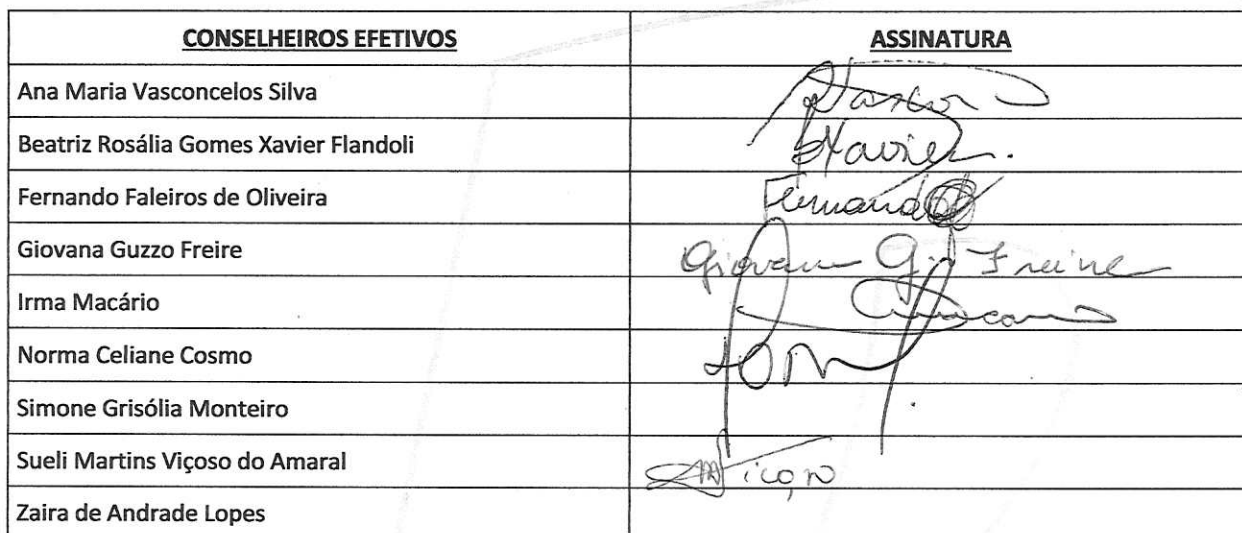 CONSELHEIROS EFETIVOS ASSINATURA
Ana Maria Vasconcelos Silva
Beatriz Rosália Gomes Xavier Flandoli BXavier.
Fernando Faleiros de Oliveira Fernando
Giovana Guzzo Freire Giovana G. Freire
Irma Macário
Norma Celiane Cosmo
Simone Grisólia Monteiro
Sueli Martins Viçoso do Amaral
Zaira de Andrade Lopes